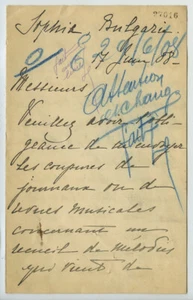 77016
Sophia Bulgarie
29/6/08
17 Juin 08.
Messieurs
Veuillez avoir l'obli-
geance de m'envoyer
les coupures de
journaux ou de
revues musicales
concernant un
recueil de mélodies
qui vient de